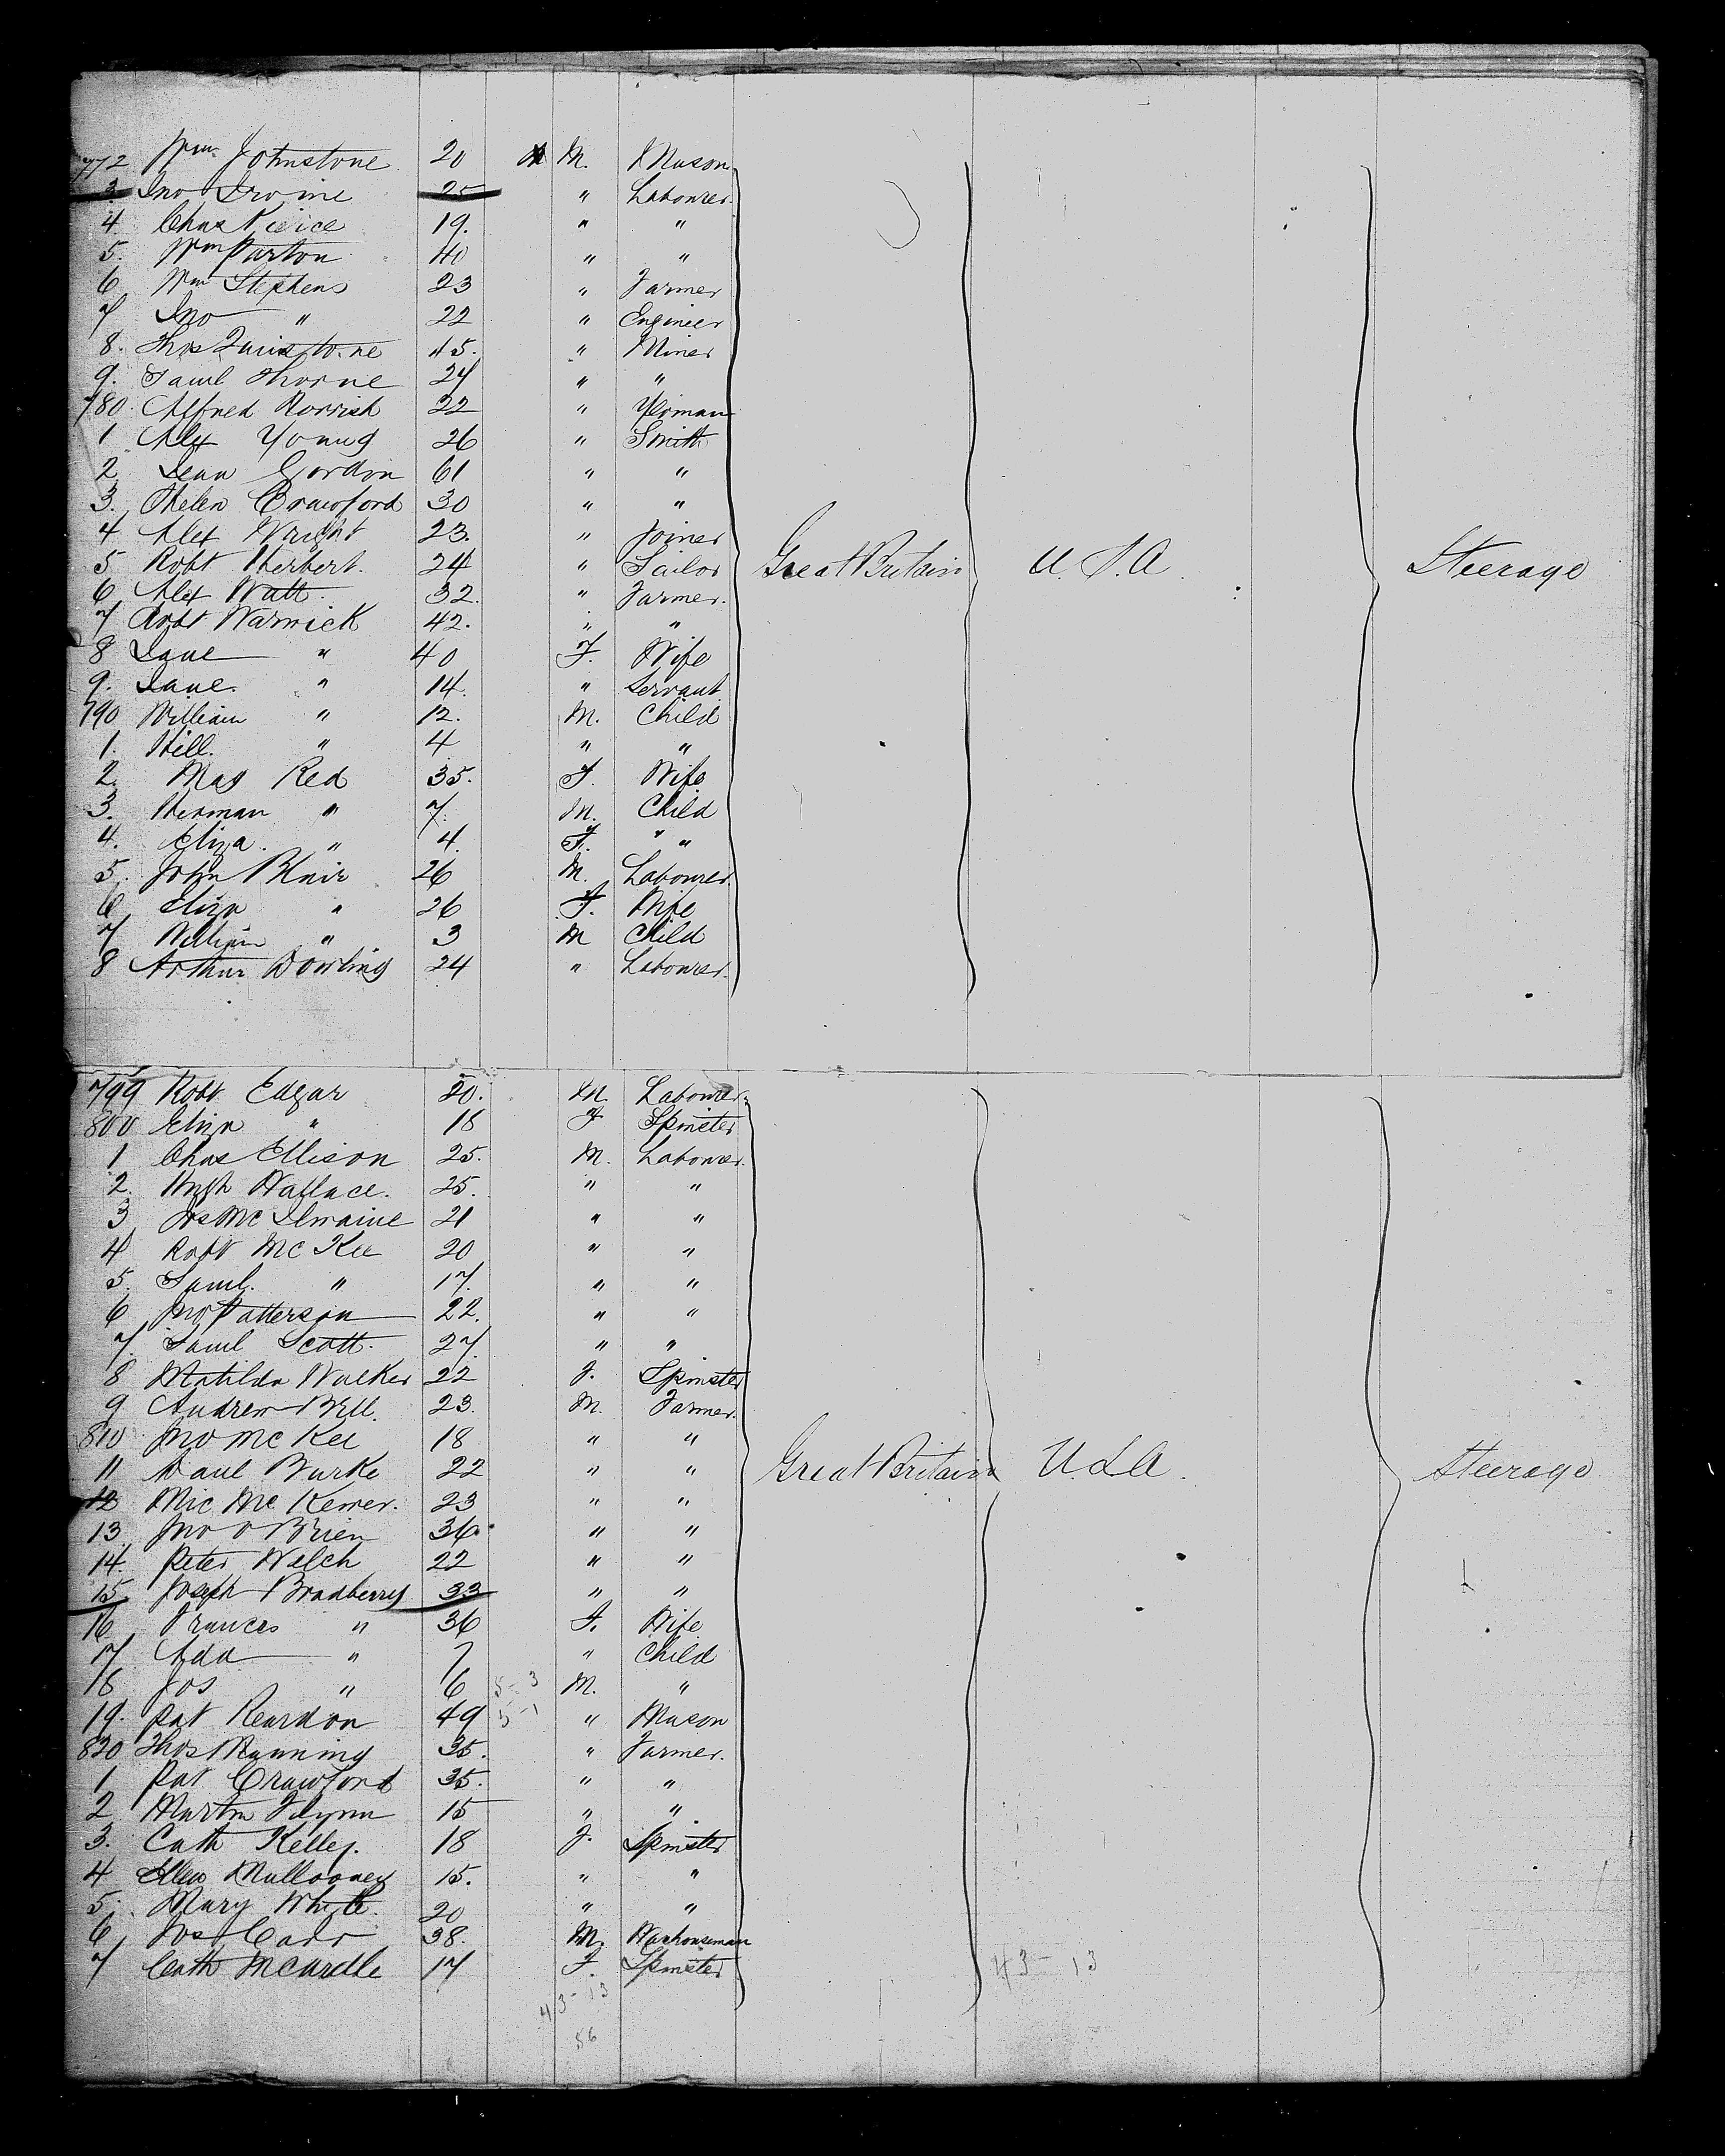 772 Wm Johnstone 20 M. Mason
3 Jno Irvine 25 " Labourer.
4 Chas Peirce 19. " "
5. Wm Parton 40 " "
6 Wm Stephens 23 " Farmer
7 Jno " 22 " Engineer
8. Thos 45. " Miner
9. Saml Thorne 24 " "
780. Alfred Horrish 22 " Yeoman
1 Alex Young 26 " Smith
2 Jean Gordon 61 " "
3. Helen Crawford 30 " "
4 Alex Wright 23. " Joiner
5 Robt Herbert. 24 " Sailor Great Britain U.S.A. Steerage
6 Alex Watt 32. " Farmer.
7 Robt Warwick 42. " "
8 Jane " 40 F. Wife
9. Jane. " 14. " Servant
790 William " 12. M. Child
1. Hill. " 4 " "
2. Mag Red 35. F. Wife
3. Herman " 7. M. Child
4. Eliza. " 4. F. " "
5. John Blair 26 M. Labourer.
6 Eliza " 26 F. Wife
7 William " 3 M Child
8 Arthur Dowling 24 " Labourer.
799 Robt Edgar 20. M. Labourer.
800 Eliza " 18 F Spinster
1 Chas Ellison 25. M. Labourer.
2. Hugh Wallace. 25. " "
3 Jas Mc Ilwaine 21 " "
4 Robt Mc Kee 20 " "
5. Saml. " 17. " "
6 Jno Patterson 22. " "
7. Saml Scott. 27. " "
8 Matilda Walker 22 F. Spinster
9 Andrew Bell. 23. M. Farmer.
810 Jno Mc Kee 18 " "
11 Danl Burke 22 " " Great Britain U.S.A. Steerage
12 Mic Mc 23 " "
13 Jno O Brien 36. " "
14. Peter Welch 22 " "
15 Joseph Bradberry 33 " "
16 Frances " 36 F. Wife
17 Ada " 7 " Child
18 Jos " 6 5-3 M. "
19. Pat Reardon 49 5-1 " Mason
820 Thos Manning 35. " Farmer.
1 Pat Crawford 35. " "
2 Martin Flynn 15 " "
3. Cath Kelley. 18 F. Spinster
4 Ellen Mullooney 15. " "
5. Mary Whyte. 20 " "
6 Jos Carr 38. M. Warhouseman
7 Cath McArdle 17 F. Spinster 43-13
43-13
56